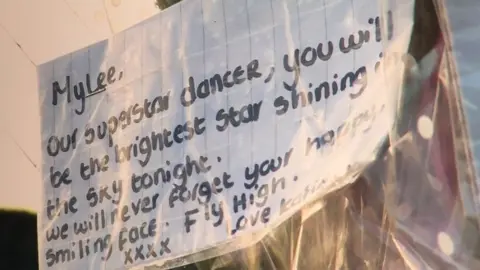 MyLee,
Our superstar dancer, you will
be the brightest star shining
the sky tonight.
we will never forget your happy,
smiling face. Fly High.
xxxx Love